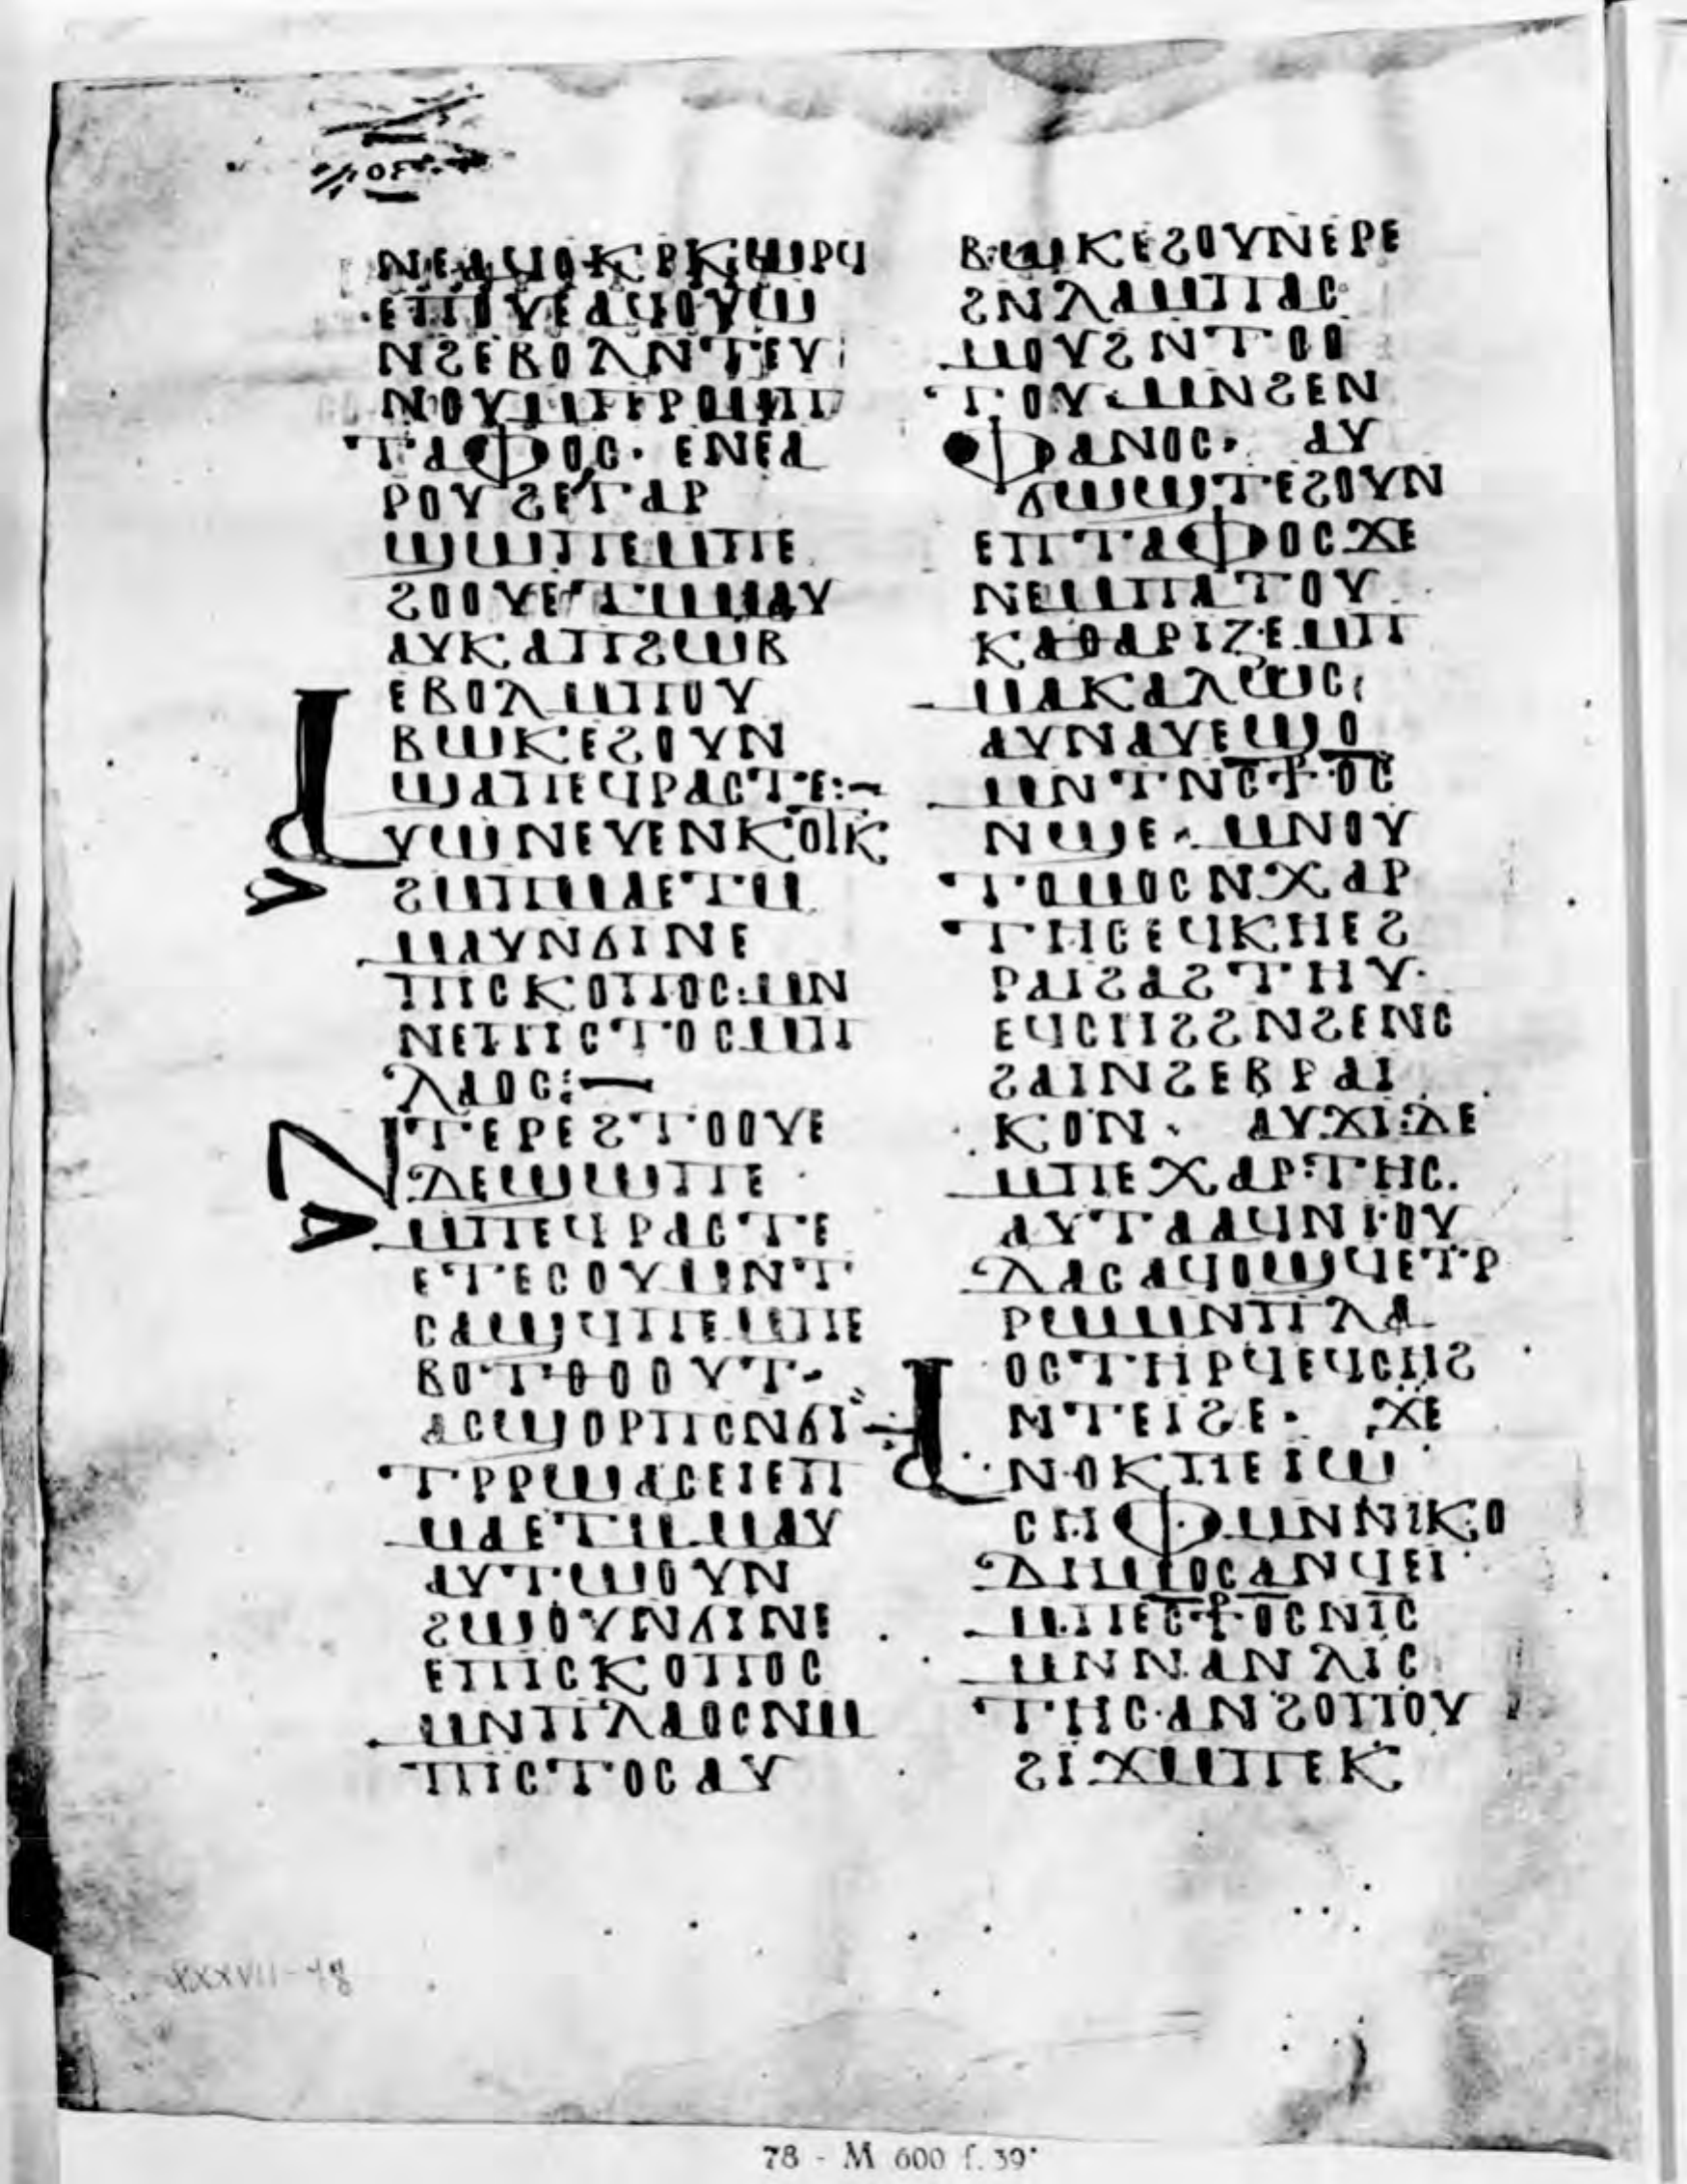 ⲟⲉ
ⲉⲡⲟⲩⲉⲁϥⲟⲩⲱ
ⲛϩⲉⲃⲟⲗⲛⲧⲉⲩ
ⲛⲟⲩⲙⲡⲉⲣⲟⲙⲡ
ⲧⲁⲫⲟⲥ· ⲉⲛⲉⲁ
ⲣⲟⲩϩⲉⲅⲁⲣ
ϣⲱⲡⲉⲙⲡⲉ
ϩⲟⲟⲩⲉⲧⲙⲙⲁⲩ
ⲁⲩⲕⲁⲡϩⲱⲃ
ⲉⲃⲟⲗⲙⲡⲟⲩ
ⲃⲱⲕⲉϩⲟⲩⲛ
ϣⲁⲡⲉϥⲣⲁⲥⲧⲉ:—
ⲁⲩⲱⲛⲉⲩⲉⲛⲕⲟⲓⲕ
ϩⲙⲡⲙⲁⲉⲧⲙ
ⲙⲁⲩⲛϭⲓⲛⲉ
ⲡⲓⲥⲕⲟⲡⲟⲥ:ⲙⲛ
ⲛⲉⲡⲓⲥⲧⲟⲥⲙⲡ
ⲗⲁⲟⲥ:—
ⲛⲧⲉⲣⲉϩⲧⲟⲟⲩⲉ
ⲇⲉϣⲱⲡⲉ
ⲙⲡⲉϥⲣⲁⲥⲧⲉ
ⲉⲧⲉⲥⲟⲩⲙⲛⲧ
ⲥⲁϣϥⲡⲉⲙⲡⲉ
ⲃⲟⲧⲑⲟⲟⲩⲧ·
ⲁⲥϣⲟⲣⲡⲥⲛϭⲓ
ⲧⲣⲣⲱⲁⲥⲉⲓⲉⲡ
ⲙⲁⲉⲧⲙⲙⲁⲩ
ⲁⲩⲧⲱⲟⲩⲛ
ϩⲱⲟⲩⲛϭⲓⲛⲉ
ⲉⲡⲓⲥⲕⲟⲡⲟⲥ
ⲙⲛⲡⲗⲁⲟⲥⲛⲙ
ⲡⲓⲥⲧⲟⲥⲁⲩ
ⲃⲱⲕⲉϩⲟⲩⲛⲉⲣⲉ
ϩⲛⲗⲁⲙⲡⲁⲥ
ⲙⲟⲩϩⲛⲧⲟⲟ
ⲧⲟⲩ·ⲙⲛϩⲉⲛ
ⲫⲁⲛⲟⲥ· ⲁⲩ
ϭⲱϣⲧⲉϩⲟⲩⲛ
ⲉⲡⲧⲁⲫⲟⲥϫⲉ
ⲛⲉⲙⲡⲁⲧⲟⲩ
ⲕⲁⲑⲁⲣⲓⲍⲉⲙⲡ
ⲙⲁⲕⲁⲗⲱⲥ·
ⲁⲩⲛⲁⲩⲉϣⲟ
ⲙⲛⲧⲛⲥ̅ⳁⲟ̅ⲥ̅
ⲛϣⲉ· ⲙⲛⲟⲩ
ⲧⲟⲙⲟⲥⲛⲭⲁⲣ
ⲧⲏⲥⲉϥⲕⲏⲉϩ
ⲣⲁⲓϩⲁϩⲧⲏⲩ·
ⲉϥⲥⲏϩϩⲛϩⲉⲛⲥ
ϩⲁⲓⲛϩⲉⲃⲣⲁⲓ
ⲕⲟⲛ· ⲁⲩϫⲓⲇⲉ
ⲙⲡⲉⲭⲁⲣⲧⲏⲥ.
ⲁⲩⲧⲁⲁϥⲛⲓⲟⲩ
ⲇⲁⲥⲁϥⲟϣϥⲉⲧⲣ
ⲣⲱⲙⲛⲡⲗⲁ
ⲟⲥⲧⲏⲣϥⲉϥⲥⲏϩ
ⲛⲧⲉⲓϩⲉ· ϫⲉ
ⲁⲛⲟⲕⲡⲉⲓⲱ
ⲥⲏⲫⲙⲛⲛⲓⲕⲟ
ⲇⲏⲙⲟⲥⲁⲛϥⲉⲓ
ⲙⲡⲉⲥ̅ⳁⲟ̅ⲥ̅ⲛⲓ̅ⲥ̅
ⲙⲛⲛⲁⲛⲗⲓⲥ
ⲧⲏⲥ·ⲁⲛϩⲟⲡⲟⲩ
ϩⲓϫⲙⲡⲉⲕ
78 - M 600 f. 39ᵛ